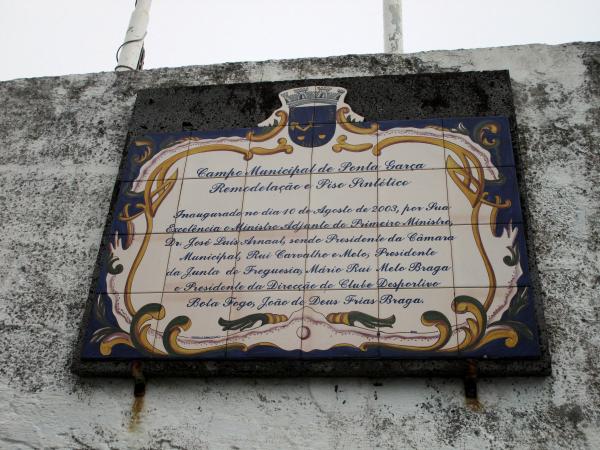 Campo Municipal de Ponta Garça
Remodelação e Piso Sintético
Inaugurado no dia 10 de Agosto de 2003, por Sua
Excelência o Ministro Adjunto do Primeiro Ministro,
Dr. José Luís Arnaut, sendo Presidente da Câmara
Municipal, Rui Carvalho e Melo, Presidente
da Junta de Freguesia, Mário Rui Melo Braga
e Presidente da Direcção do Clube Desportivo
Bota Fogo, João de Deus Frias Braga.